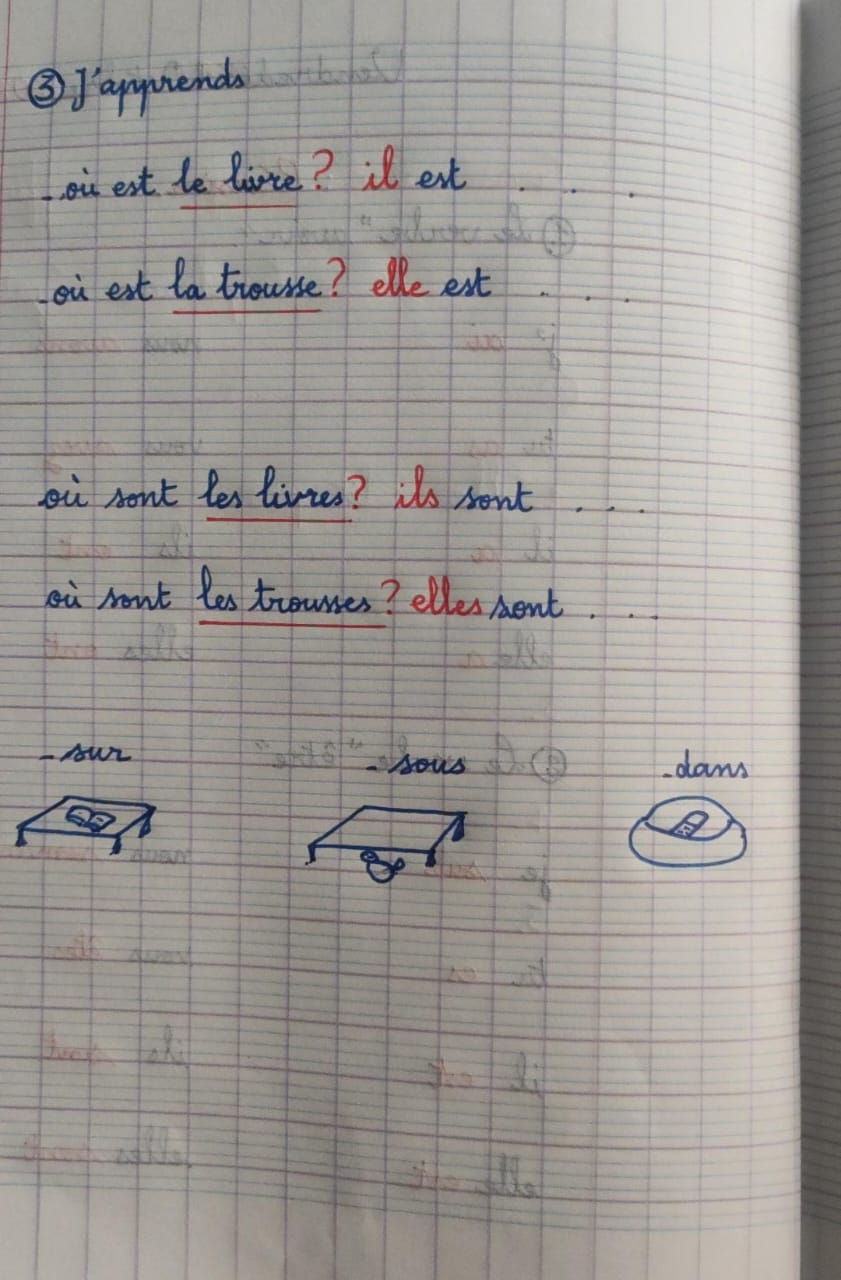 ③ J'apprends
- où est le livre ? il est . . .
- où est la trousse ? elle est . . .
où sont les livres ? ils sont . . .
où sont les trousses ? elles sont . . .
- sur - sous - dans